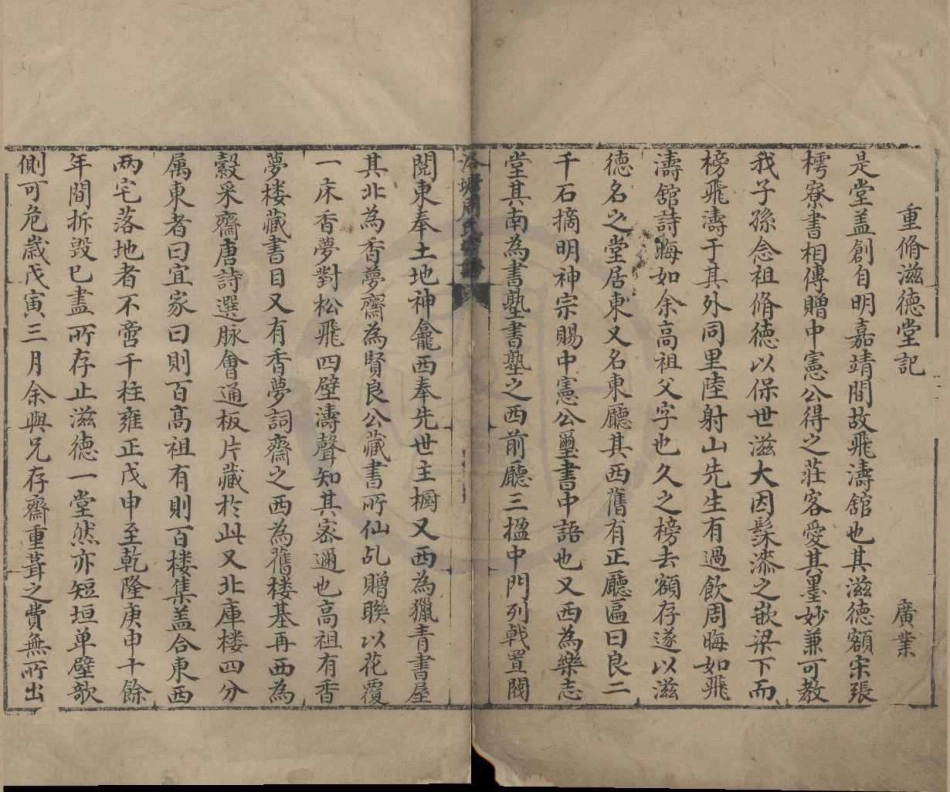 重脩滋德堂記
廣業
是堂盖創自明嘉靖間故飛濤舘也其滋德額宋張
樗寮書相傳贈中憲公得之莊客愛其墨妙兼可教
我子孫念祖脩德以保世滋大因髹漆之嵌梁下而
榜飛濤于其外同里陸射山先生有過飲周晦如飛
濤舘詩晦如余高祖父字也久之榜去額存遂以滋
德名之堂居東又名東廳其西舊有正廳匾曰良二
千石摘明神宗賜中憲公璽書中語也又西為樂志
堂其南為書塾書塾之西前廳三楹中門列戟置閥
洛塘周氏家
閱東奉土地神龕西奉先世主櫥又西為獵青書屋
其北為香夢齋為賢良公藏書所仙乩贈聯以花覆
一床香夢對松飛四壁濤聲知其宻邇也高祖有香
夢楼藏書目又有香夢詞齋之西為舊楼基再西為
穀采齋唐詩選脉會通板片藏扵此又北庫楼四分
属東者曰宜家曰則百高祖有則百楼集盖合東西
兩宅落地者不啻千柱雍正戊申至乾隆庚申十餘
年間拆毀已盡所存止滋德一堂然亦短垣单壁欹
側可危歲戊寅三月余與兄存齋重葺之費無所出